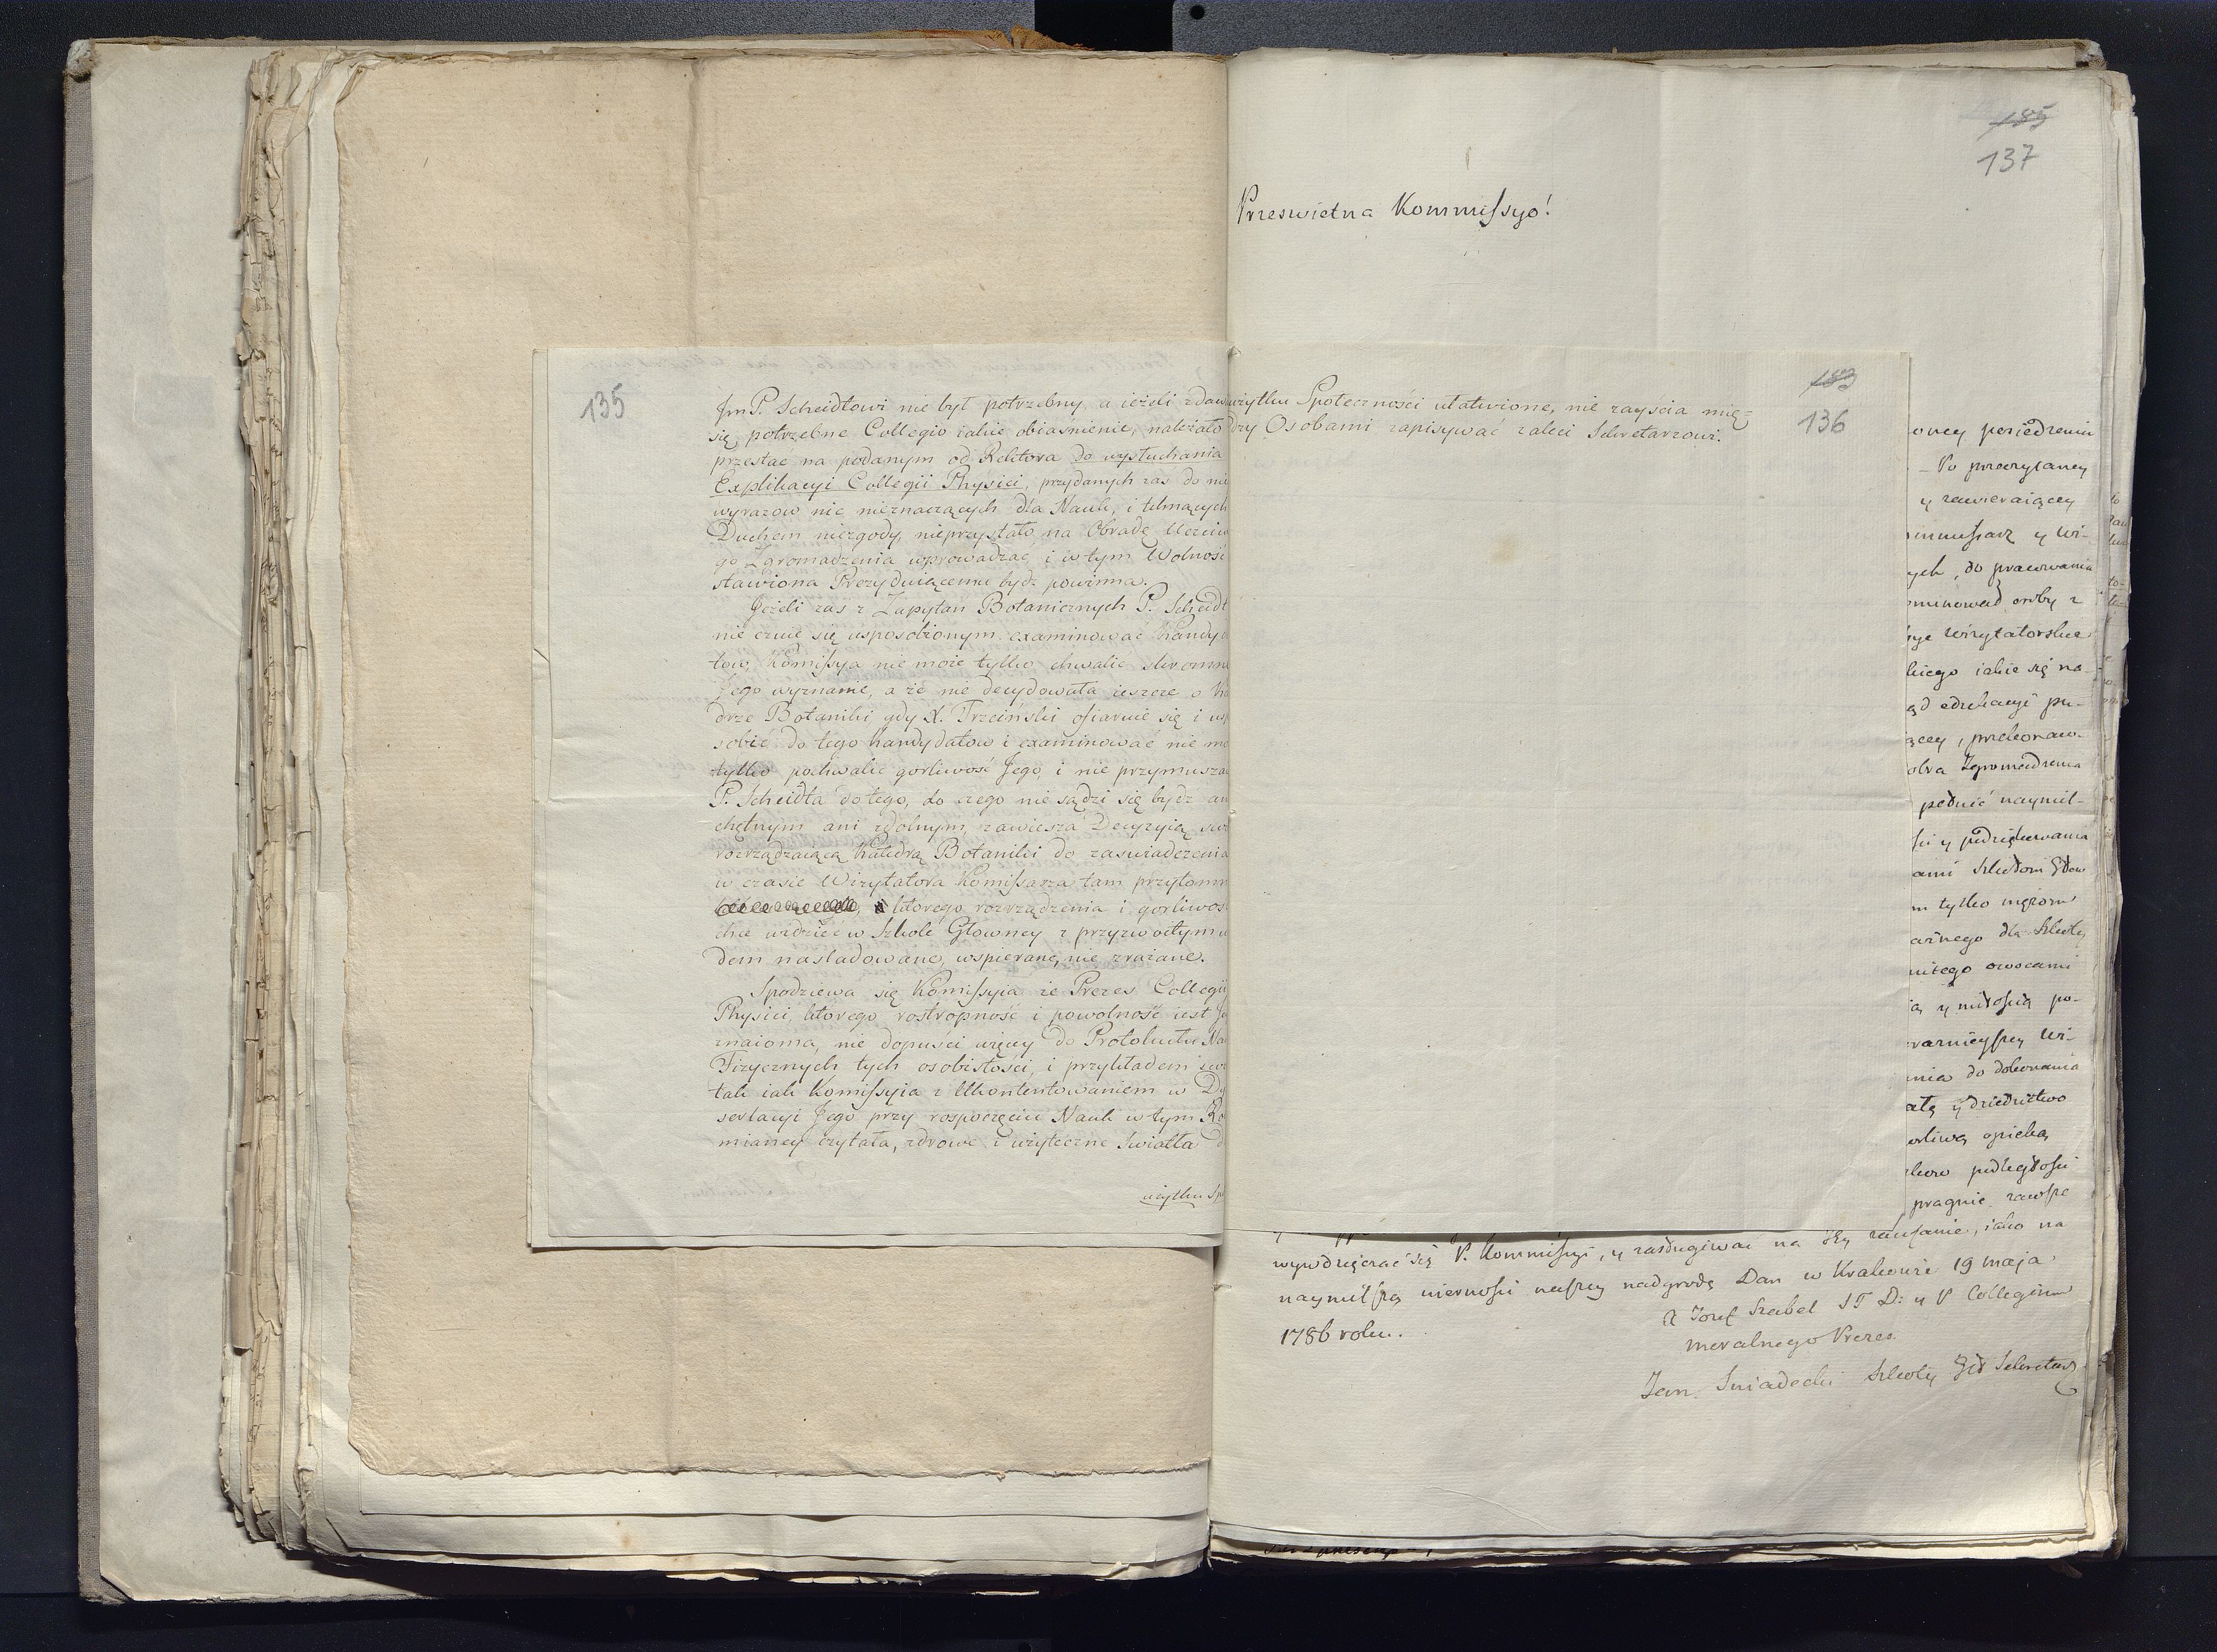 135
Jm P. Scheidtowi nie był potrzebny, a ieżeli zdaw
się potrzebne Collegio iakie obiaśnienie, należało
przestać na podanym od Rektora do wysłuchania
Explikacyi Collegii Physici, przydanych zas do ni
wyrazow nic nieznaczących dla Nauk, i tchnących
Duchem niezgody, nieprzystało na Obradę Uczciw
go Zgromadzenia wprowadzać i w tym Wolność
stawiona Prezyduiącemu bydź powinna.
Jeżeli zas z Zapytan Botanicznych P. Scheidt
nie czuie się usposobionym examinować Kandyd
tow, Komissya nie może tylko chwalić skromne
Jego wyznanie, a że nie decydowała ieszcze o Ka
drze Botaniki gdy X. Trzciński ofiaruie się i us
sobić do tego Kandydatow i examinować nie mo
tylko pochwalić gorliwość Jego, i nie przymusza
P. Scheidta do tego, do czego nie sądzi się bydź an
chętnym ani zdolnym, zawiesza Decyzyią sw
rozrządzaiącą Katedrą Botaniki do zaswiadczenia
w czasie Wizytatora Komissarza tam przytomn
ktorego rozrządzenia i gorliwos
chce widzieć w Szkole Głowney z przyzwoitym w
dem nasladowane, wspierane, nie zrażane.
Spodziewa się Komissyia że Prezes Collegii
Physici, którego rostropność i powolność iest Je
znaioma, nie dopusci więcy do Protokułu Na
Fizycznych tych osobistości, i przykładem swo
tak iak Komissyia z Ukontentowaniem w Dy
sertacyi Jego przy rospoczęciu Nauk w tym Ro
mianey czytała, zdrowe i użyteczne swiatła d
użytku Sp
183
136
użytku Społeczności ułatwione, nie zayścia mię-
dzy Osobami zapisywać zaleci Sekretarzowi.
185
137
Przeswietna Kommissyo!
owey posiedzeniu
Po przeczytaney
y zawieraiącey
ommissarz y Wi-
ych, do pracowania
ominował osoby z
cye wizytatorskie
kiego iakie się na-
ąd edukacyi pu-
ącey, przekonaw-
obra Zgromadzenia
pełnić naymil-
ści y podziękowania
ami Szkołom Głow
m tylko mężom
ażnego dla Szkoły
mitego owocami
ią y miłością po-
warnieyszey Wi-
nia do dokonania
atę y dziedzictwo
orliwą opieką
kiero podległości
pragnie zawsze
wywdzięczać się P. Kommissyi, y zasługiwać na Jey zaufanie, iako na
naymilszą wierności naszey nadgrodę Dan w Krakowie 19 maja
1786 roku.
X Jozef Szabel ST D: y P Collegium
moralnego Prezes
Jan Sniadecki Szkoły Głł Sekretarz